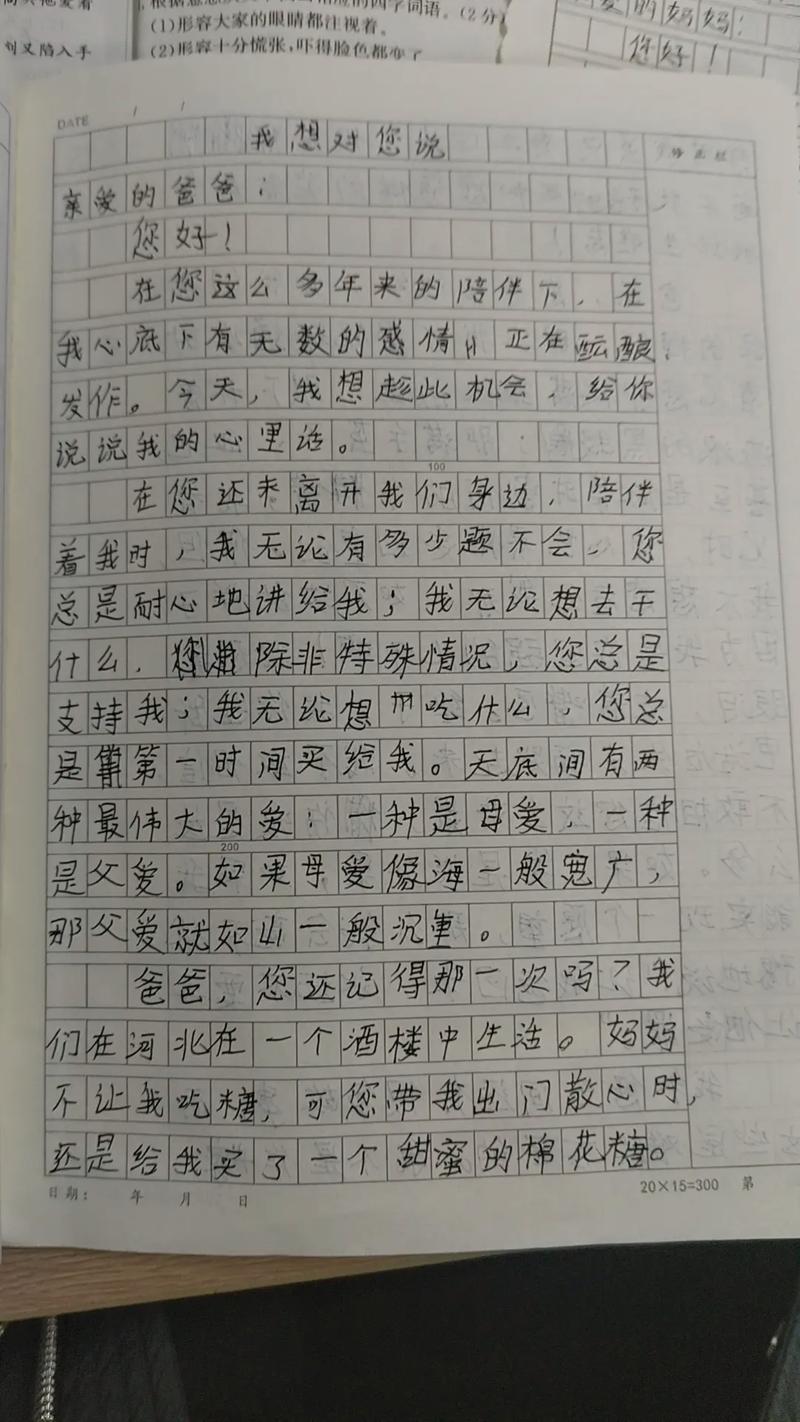 (1)形容大家的眼睛都注视着。
(2)形容十分慌张，吓得脸色都变了
刘又陷入手
爱的妈妈：
您好！
DATE / /
我想对您说
修正栏
亲爱的爸爸：
您好！
在您这么多年来的陪伴下，在
我心底下有无数的感情正在酝酿、
发作。今天，我想趁此机会，给你
说说我的心里话。
100
在您还未离开我们身边，陪伴
着我时，我无论有多少题不会，您
总是耐心地讲给我；我无论想去干
什么，除非特殊情况，您总是
支持我；我无论想吃什么，您总
是第一时间买给我。天底间有两
种最伟大的爱：一种是母爱，一种
是父爱。如果母爱像海一般宽广，
200
那父爱就如山一般沉重。
爸爸，您还记得那一次吗？我
们在河北在一个酒楼中生活。妈妈
不让我吃糖，可您带我出门散心时，
还是给我买了一个甜蜜的棉花糖。
日期： 年 月 日
20×15=300 第